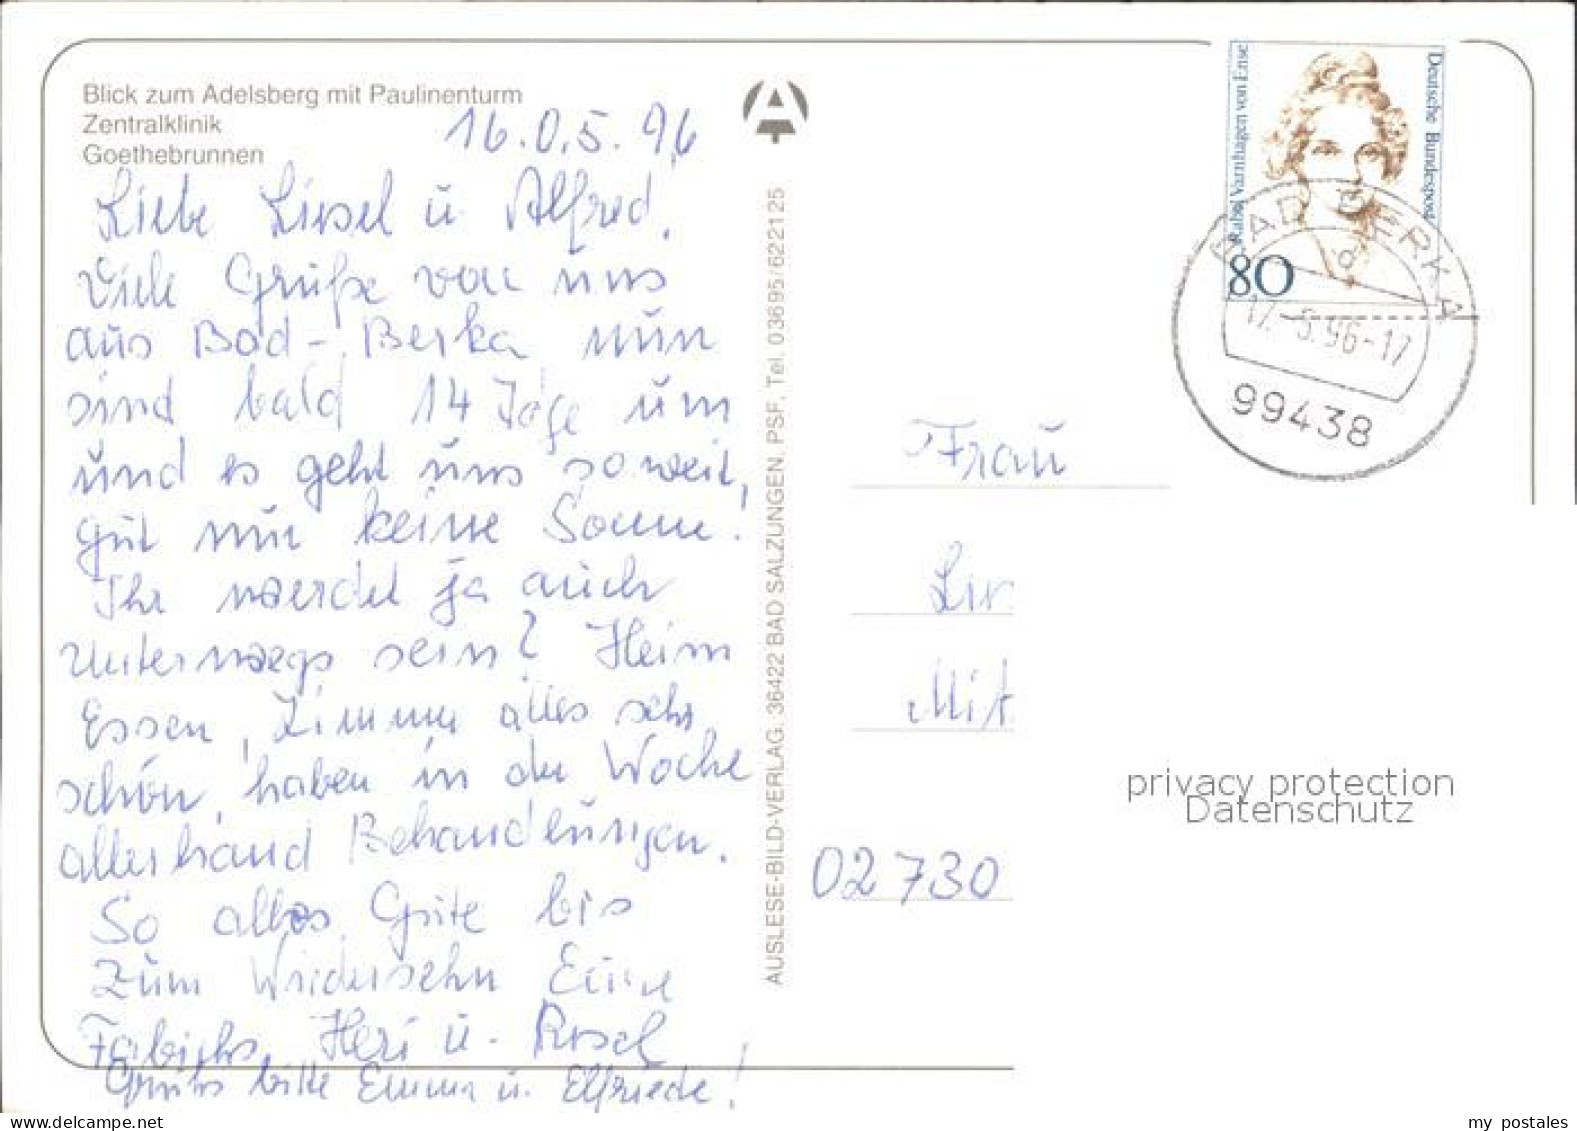 Blick zum Adelsberg mit Paulinenturm
Zentralklinik
Goethebrunnen
16.0.5.96
Liebe Liesel ü. Alfred,
Viele Grüße von uns
aus Bad-Berka nun
sind bald 14 Tage um
und es geht uns soweit,
gut nur keine Sonne.
Ihr werdet ja auch
Unterwegs sein? Heim
Essen, Zimmer alles sehr
schön, haben in der Woche
allerhand Behandlungen.
So alles Gute bis
zum Wiedersehn Eure
Fabichs, Heri u. Rosel
Grüßs bitte Emma u. Elfriede!
AUSLESE-BILD-VERLAG, 36422 BAD SALZUNGEN, PSF, Tel. 03695/622125
Rahel Varnhagen von Ense
Deutsche Bundespost
80
BAD BERKA
d
17.-5.96-17
99438
Frau
Mit
02730
privacy protection
Datenschutz
my postales